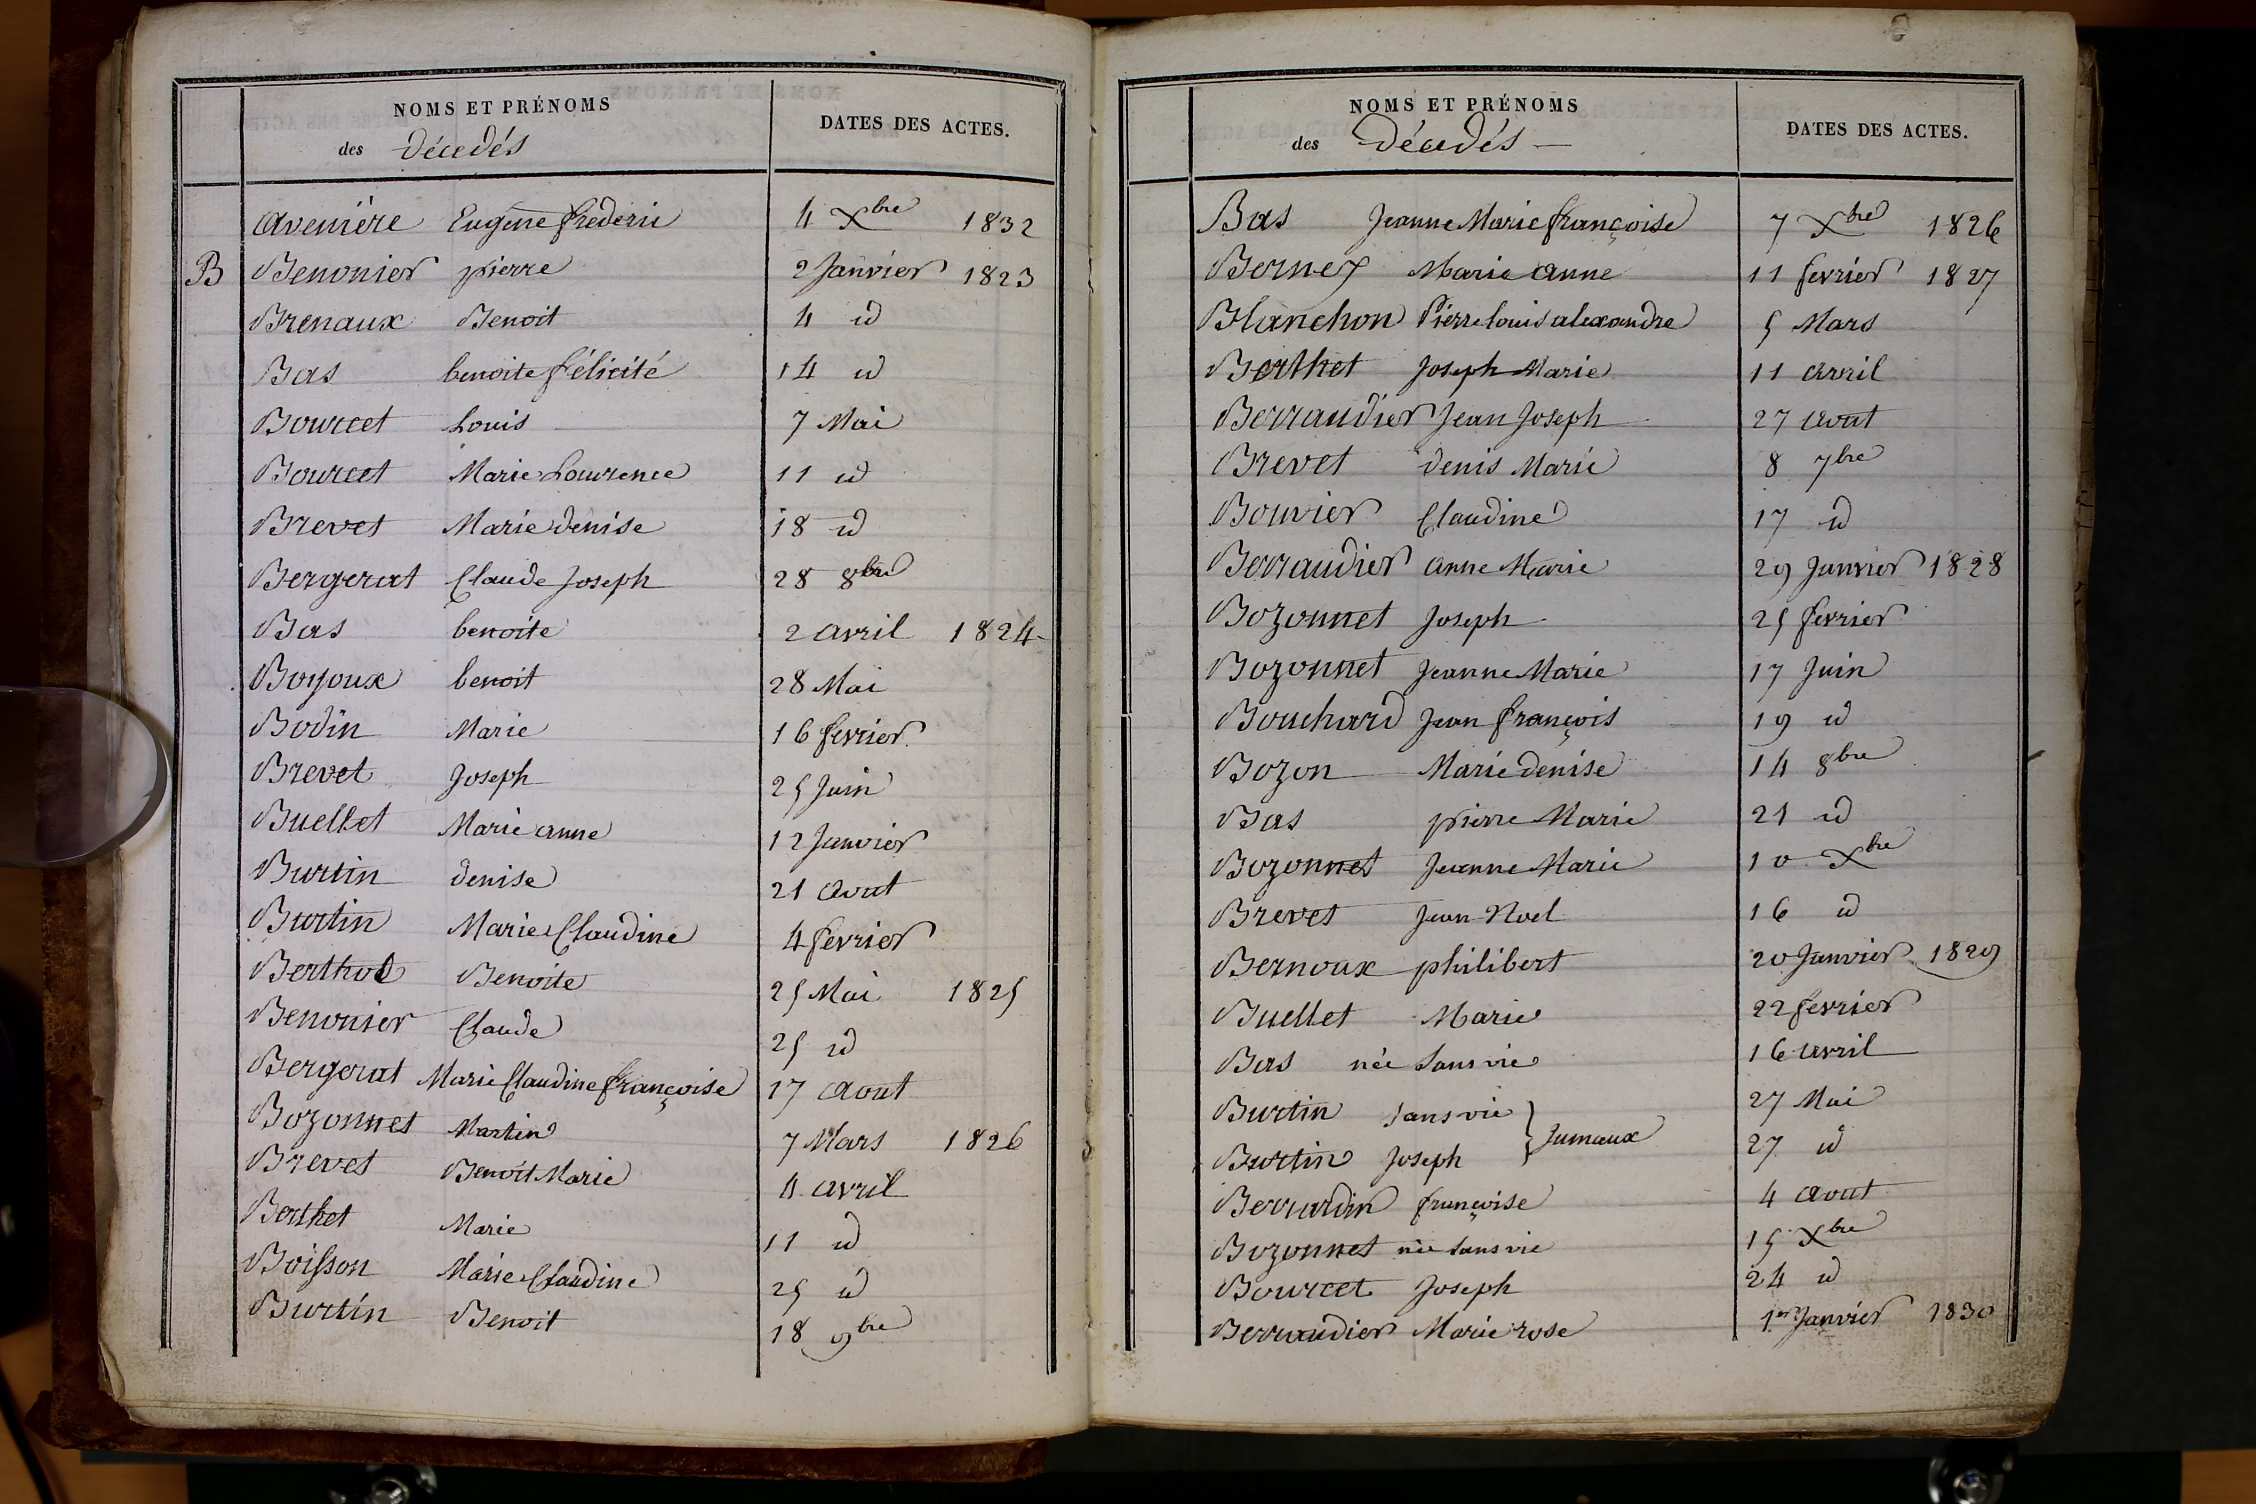 NOMS ET PRÉNOMS
des Décédés
DATES DES ACTES.
Avenière Eugène frédéric 4 Xbre 1832
B Benonier pierre 2 Janvier 1823
Brenaux Benoit 4 id
Bas benoite félicité 14 id
Bourcet Louis 7 Mai
Bourcet Marie Laurence 11 id
Brevet Marie denise 18 id
Bergerat Claude Joseph 28 8bre
Bas benoite 2 avril 1824
Boyoux benoit 28 Mai
Bodin Marie 16 fevrier
Brevet Joseph 25 Juin
Buellet Marie anne 12 Janvier
Burtin denise 21 aout
Burtin Marie Claudine 4 fevrier
Berthod Benoite 25 Mai 1825
Benonier Claude 25 id
Bergerat Marie Claudine françoise 17 aout
Bozonnet Martin 7 Mars 1826
Brevet Benoit Marie 4 avril
Berthet Marie 11 id
Boisson Marie Claudine 25 id
Burtin Benoit 18 9bre
NOMS ET PRÉNOMS
des Décédés
DATES DES ACTES.
Bas Jeanne Marie françoise 7 Xbre 1826
Berney Marie anne 11 fevrier 1827
Blanchon Pierre louis alexandre 5 Mars
Berthet Joseph Marie 11 avril
Berraudier Jean Joseph 27 aout
Brevet denis Marie 8 7bre
Bouvier Claudine 17 id
Berraudier anne Marie 29 Janvier 1828
Bozonnet Joseph 25 fevrier
Bozonnet Jeanne Marie 17 Juin
Bouchard Jean françois 19 id
Bozon Marie denise 14 8bre
Bas pierre Marie 21 id
Bozonnet Jeanne Marie 10 Xbre
Brevet Jean Noel 16 id
Bernoux philibert 20 Janvier 1829
Buellet Marie 22 fevrier
Bas née sans vie 16 avril
Burtin sans vie 27 Mai
Burtin Joseph } Jumeaux 27 id
Berrardin françoise 4 aout
Bozonnet née sans vie 15 Xbre
Bourcet Joseph 24 id
Berraudier Marie rose 1er Janvier 1830